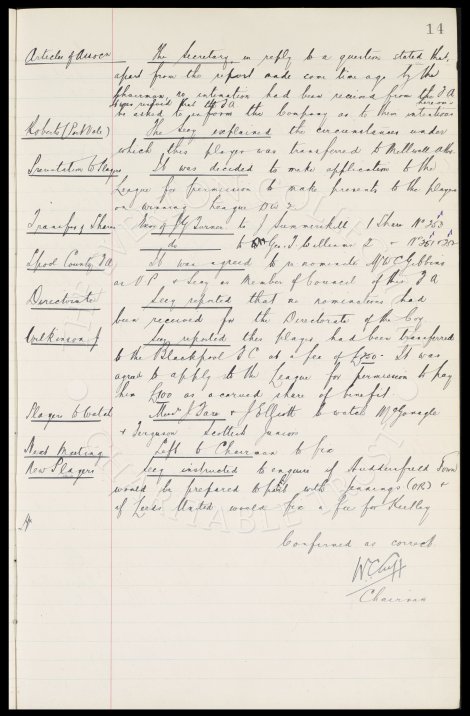 14
Articles of Assocn The Secretary in reply to a question stated that,
apart from the report made some time ago by the
Chairman, no intimation had been received from the F A
It was resolved that the F A
be asked to inform the Company as to their intentions hereon.
Roberts (Port Vale) The Secy explained the circumstances under
which this player was transferred to Millwall Ath.
Presentation to Players It was decided to make application to the
League for permission to make presents to the players
on winning League Div 2
Transfer of Shares Mrs J Turner to J Summerskill 1 Share No 363
do to Geo. T. Williams 2 " No 361 + 362
Lpool County F.A It was agreed to renominate Mr W C Gibbins
as V P + Secy as Member of Council of this F A
Directorate Secy reported that no nominations had
been received for the Directorate of the Coy
Wilkinson J Secy reported this player had been transferred
to the Blackpool F C at a fee of £750. It was
agreed to apply to the League for permission to pay
him £100 as accrued share of benefit.
Players to Watch Messrs J Fare + J Elliott to watch McGonagle
+ Ferguson Scottish Juniors
Next Meeting Left to Chairman to fix
New Players Secy instructed to enquire if Huddersfield Town
would be prepared to part with Jennings (OR) +
if Leeds United would fix a fee for Keetley
Confirmed as correct
W. C. Cuff
Chairman